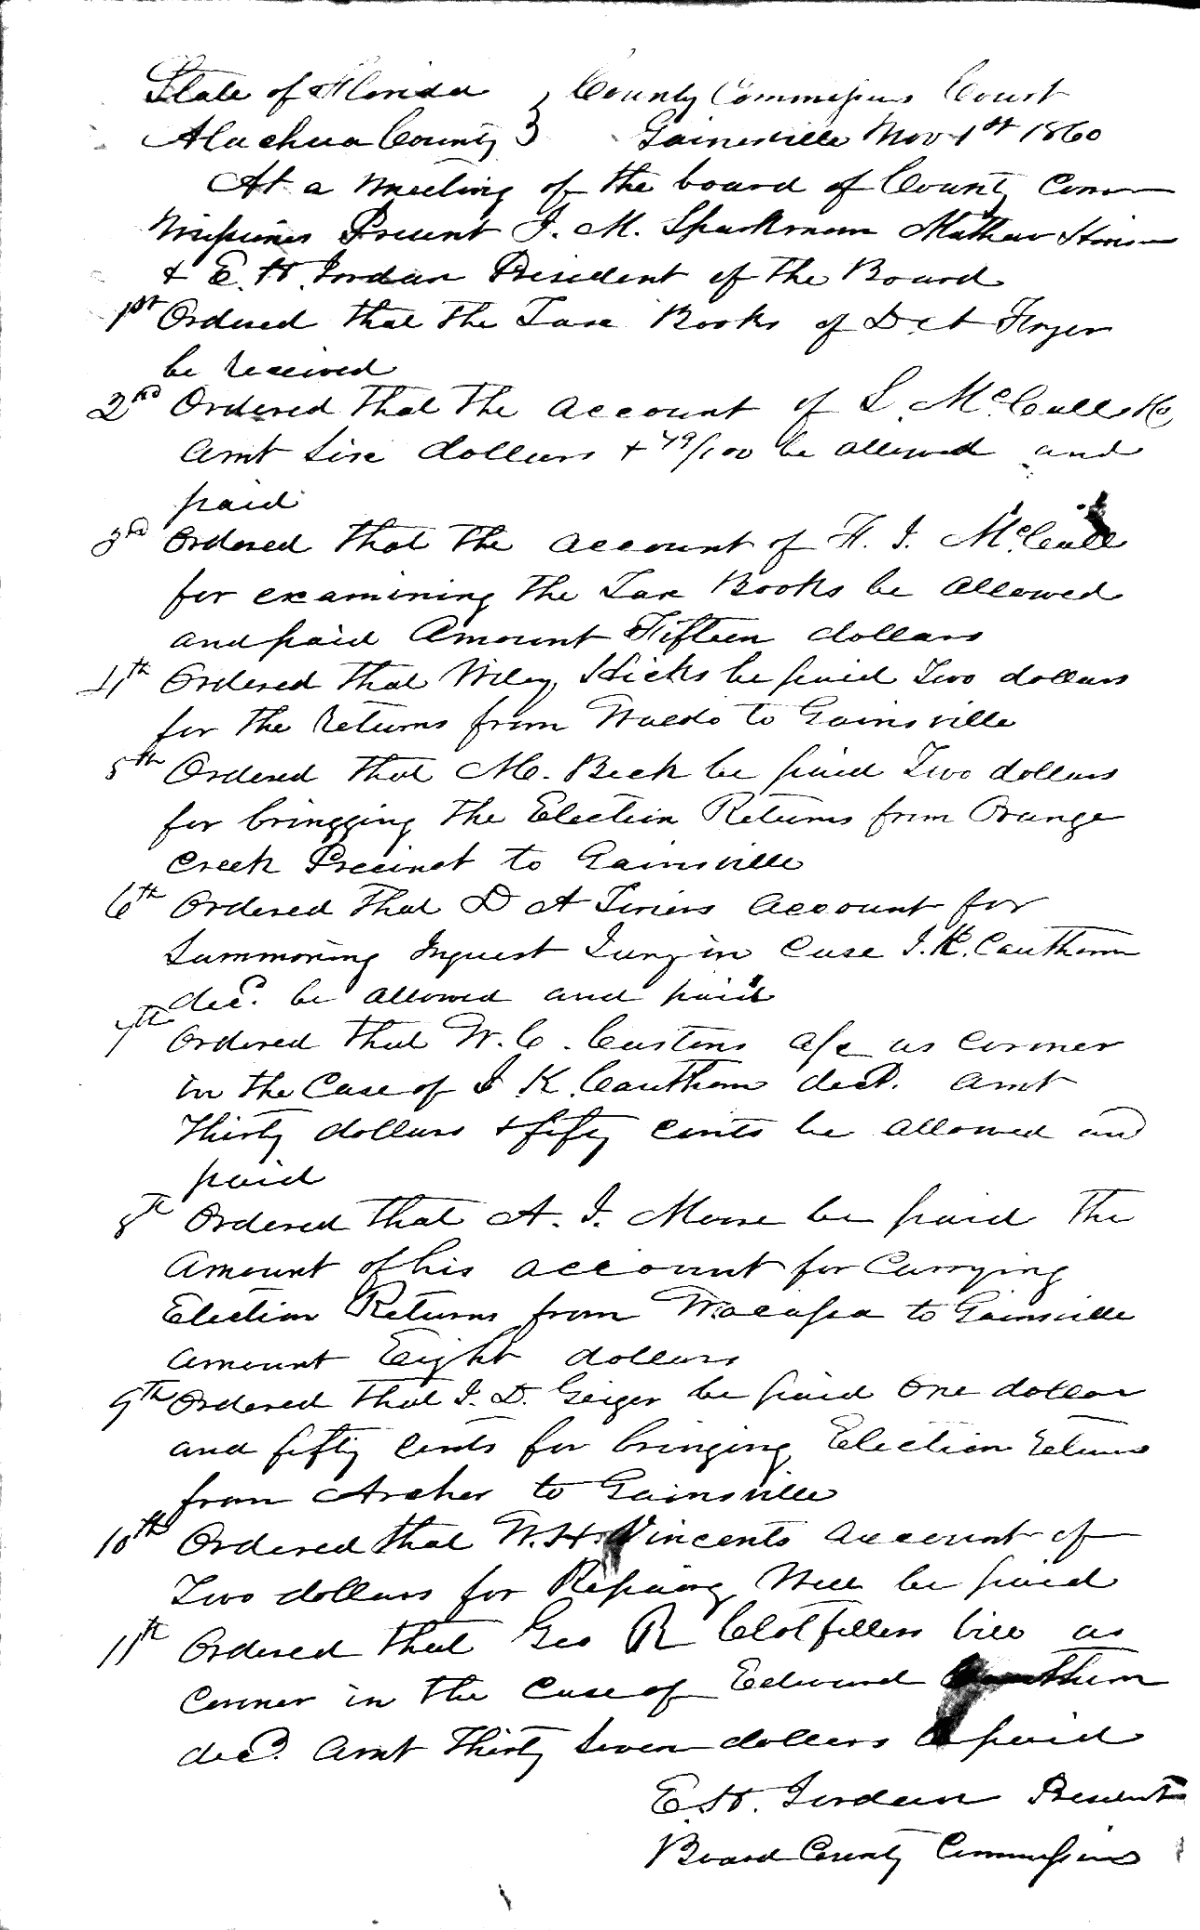 State of Florida } County Commissioners Court
Alachua County } Gainesville Nov 1st 1860
At a meeting of the board of County Com
missioners Present J. M. Sparkman Mathew
& E. H. Jordan President of the Board
1st Ordered that the Tax Books of D. A
be received
2nd Ordered that the account of S. McCall
amt Six dollars & 79/100 be allowed and
paid
3rd Ordered that the account of H. J. McCall
for examining the Tax Books be allowed
and paid Amount Fifteen dollars
4th Ordered that Wiley Hicks be paid Two dollars
for the returns from Waldo to Gainsville
5th Ordered that M. Beck be paid Two dollars
for bringging the Election Returns from Orange
Creek Precinct to Gainsville
6th Ordered that D A account for
Summoning Inquest Jury in Case J. K. Cauthorn
decd. be allowed and paid
7th Ordered that W. C. a/c as Corner
in the Case of J. K. Cauthorn decd. amt
Thirty dollars & fifty cents be allowed and
paid
8th Ordered that A. J. be paid the
Amount of his account for Carrying
Election Returns from Wacassa to Gainsville
amount Eight dollars
9th Ordered that J. D. Geiger be paid One dollar
and fifty cents for bringing Election Returns
from Archer to Gainsville
10th Ordered that W. H. Vincents account of
Two dollars for Repairing Well be paid
11th Ordered that Geo R bill as
Corner in the Case of Edward Cauthorn
decd. amt Thirty Seven dollars paid
E. H. Jordan President
Board County Commissioners